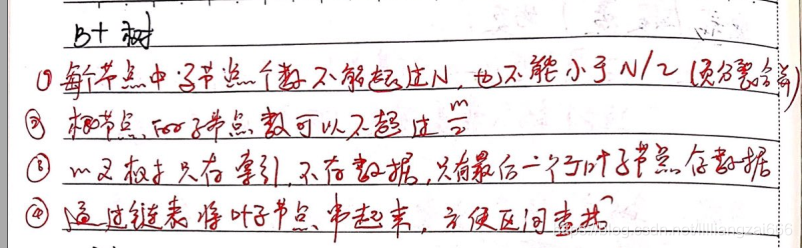 B+ 树
① 每个节点中子节点个数不能超过N，也不能小于N/2（页分裂合并）
② 根节点 For子节点数可以不超过 m/2
③ m叉树只存索引，不存数据，只有最后一个行叶子节点存数据
④ 通过链表将叶子节点串起来，方便区间查找